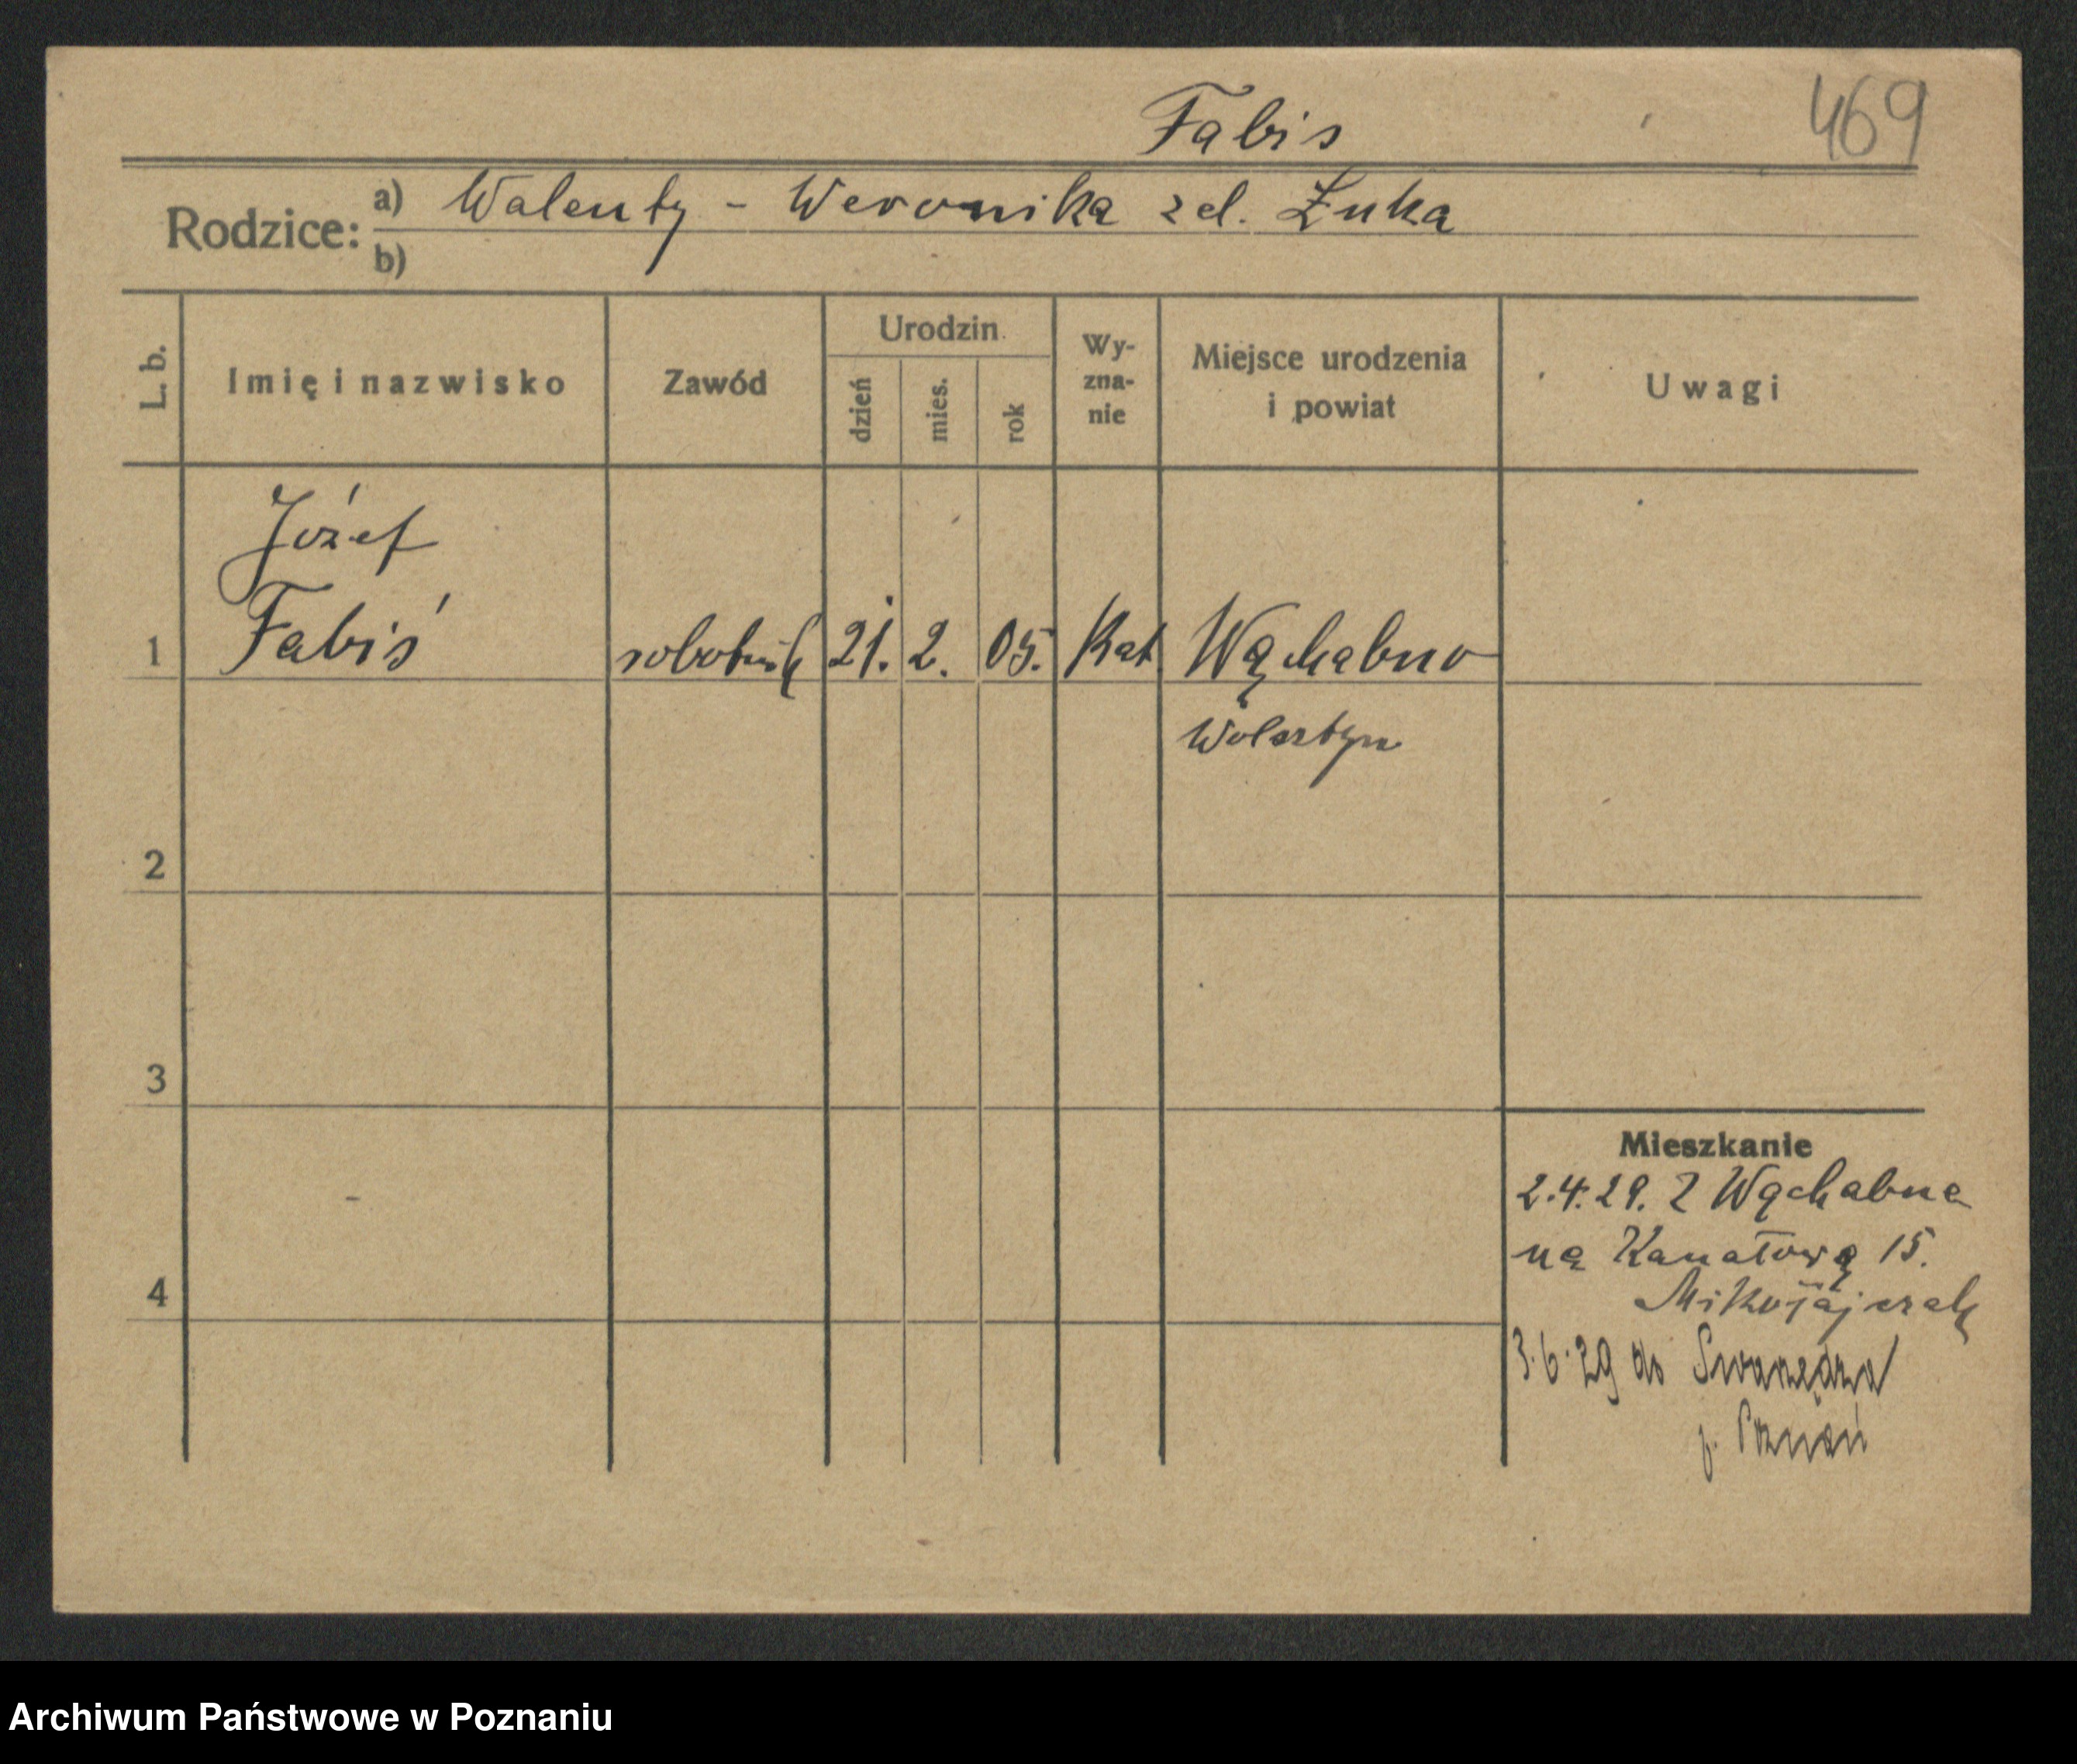 Fabis
469
Rodzice: a) Walenty - Weronika zd. Żuka
b)
L. b. Imię i nazwisko Zawód Urodzin. dzień mies. rok Wy-zna-nie Miejsce urodzenia i powiat Uwagi
Józef
1 Fabiś robotnik 21. 2. 05. Kat. Wąchabno
Wolsztyn
2
3
Mieszkanie
2.4.29. Z Wąchabna
na Kanałową 15.
4 Mikołajczak
3.6.29 do Swarzędza
p. Poznań
Archiwum Państwowe w Poznaniu